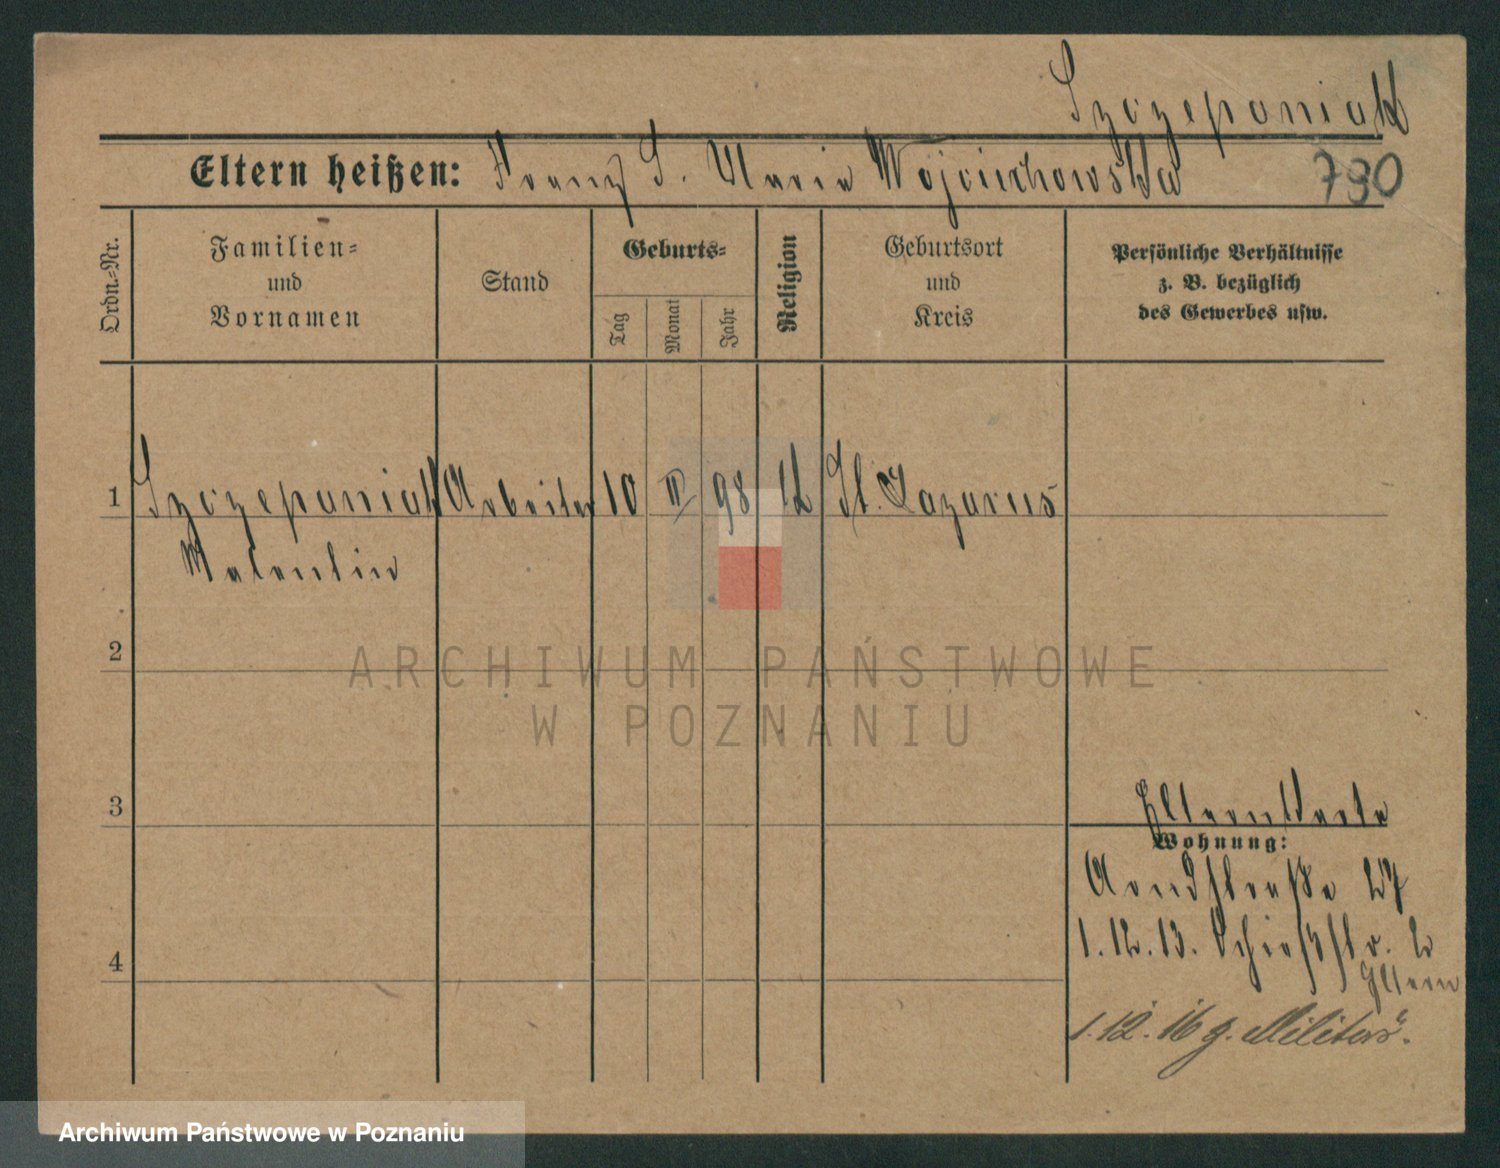 Szczepaniak
Eltern heißen: Franz S. Maria Wojciechowska 790
Ordn.-Nr.
Familien-
und
Vornamen
Stand
Geburts-
Tag
Monat
Jahr
Religion
Geburtsort
und
Kreis
Persönliche Verhältnisse
z. B. bezüglich
des Gewerbes usw.
1 Szczepaniak Arbeiter 10 II 98 k St. Lazarus
Valentin
2
3
4
Elternkarte
Wohnung:
Arndtstraße 27
1.12.13. Schießstr. 2
Eltern
1.12.16 z. Militär.
ARCHIWUM PAŃSTWOWE
W POZNANIU
Archiwum Państwowe w Poznaniu